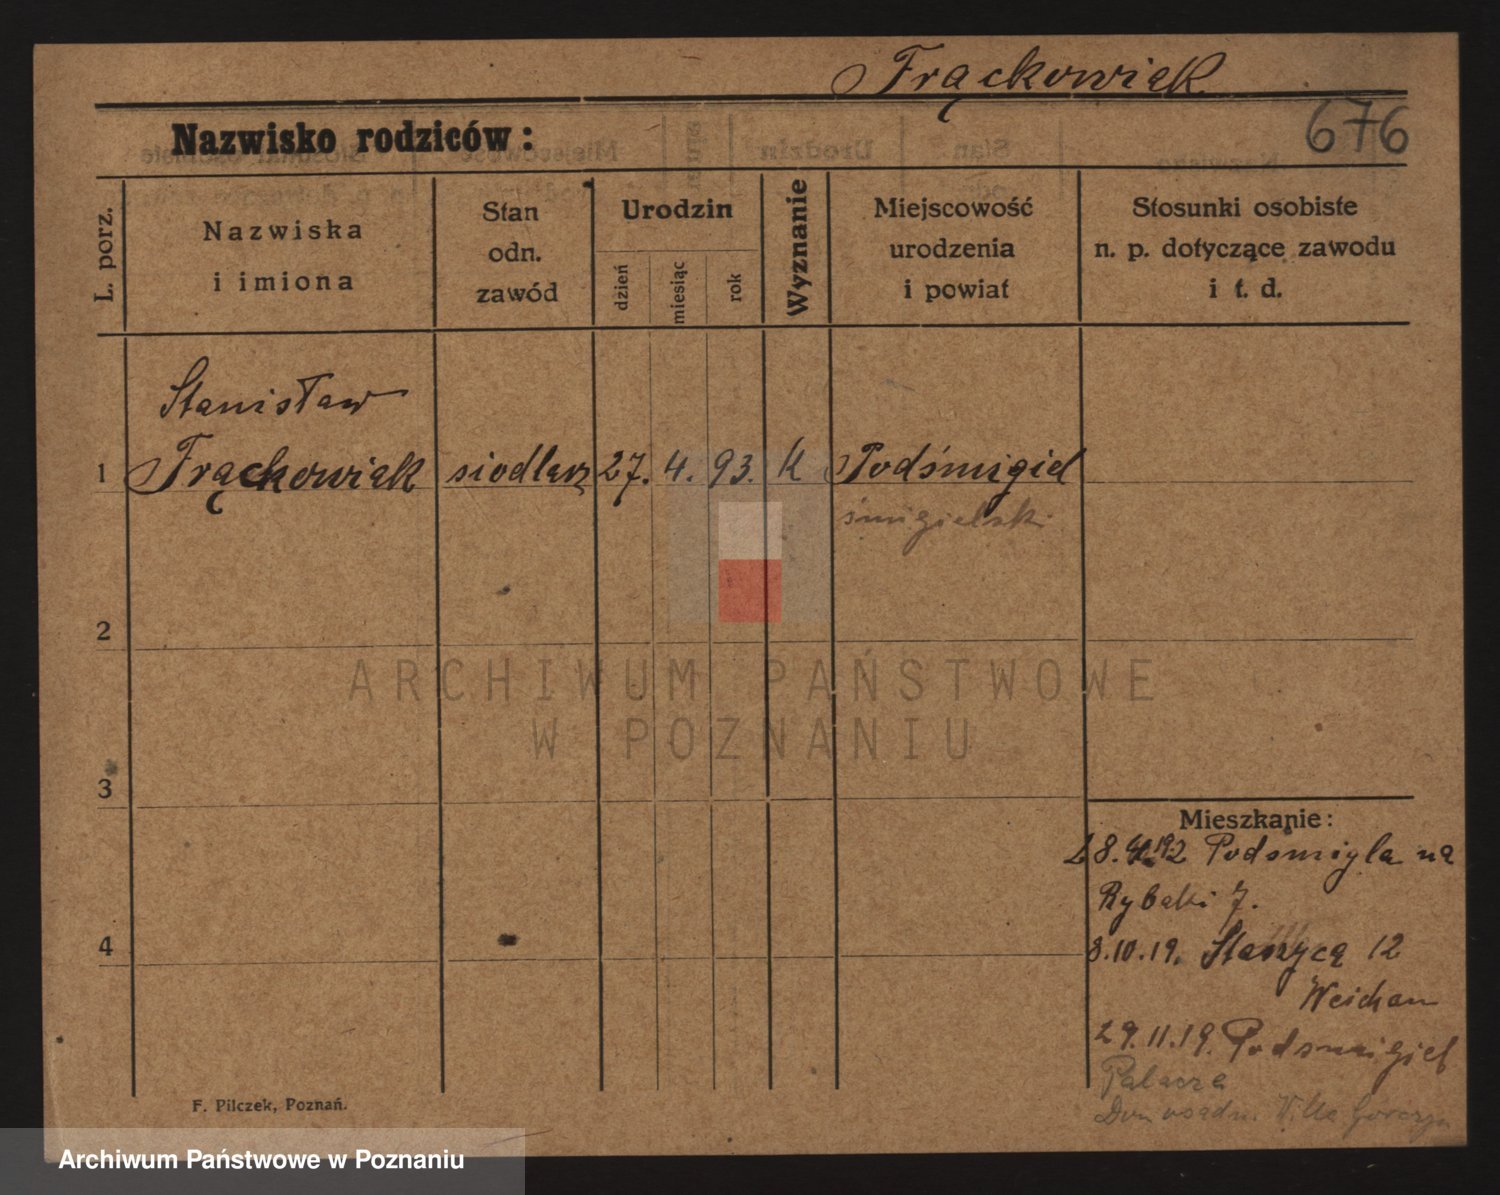 Frąckowiak
676
Nazwisko rodziców:
L. porz.
Nazwiska
i imiona
Stan
odn.
zawód
Urodzin
dzień
miesiąc
rok
Wyznanie
Miejscowość
urodzenia
i powiat
Stosunki osobiste
n. p. dotyczące zawodu
i t. d.
Stanisław
1 Frąckowiak siodlarz 27. 4. 93. K Podśmigiel
śmigielski
2
ARCHIWUM PAŃSTWOWE
W POZNANIU
3
Mieszkanie:
Podsmigla na
Rybaki 7.
4
8.10.19. 12
Weichan
29.11.19. Podsmigiel
Palacza
Villa Górczyn
F. Pilczek, Poznań.
Archiwum Państwowe w Poznaniu